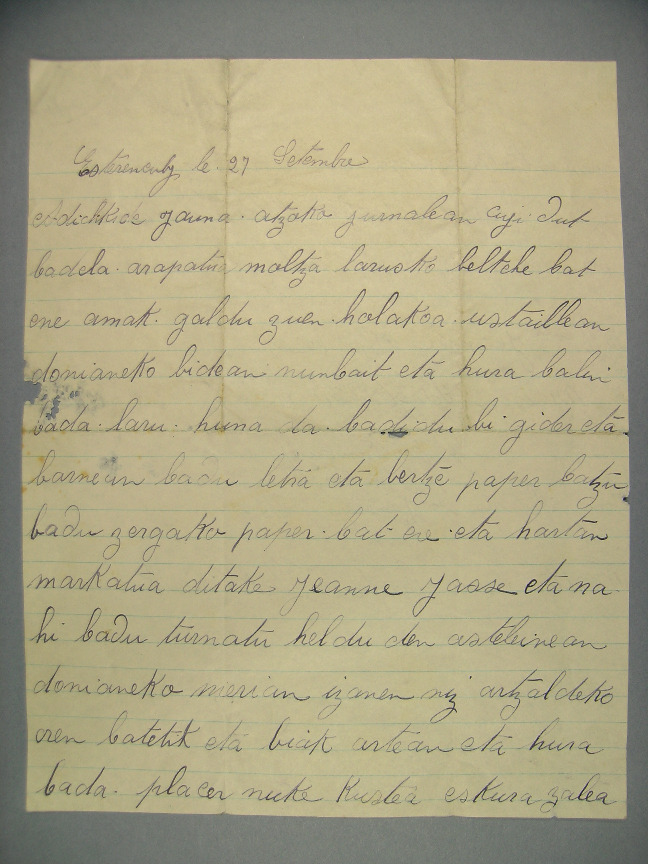 Esterencuby le 27 Setembre
jauna. atzoko jurnalean cuji dut
badela. arapatua moltza larusko beltche bat
ene amak. galdu zuen. holakoa. ustaillean
donianeko bidean nunbait eta hura balin
bada. laru. huna da. badi du bi gider eta.
barnean badu letra eta bertze paper batzu
badu zergako paper. bat ere. eta hartan
markatua ditake Jeanne Jasse eta na-
hi badu turnatu heldu den astelenean
donianeko merian izanen niz artzaldeko
oren batetik eta biak artean eta hura
bada. placer nuke eskura zalea